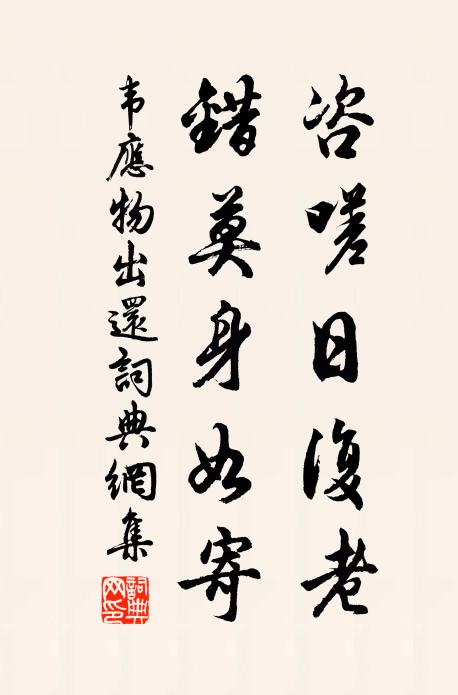 咨嗟日復老
錯莫身如寄
韦應物出還詞典網集
詞典网印